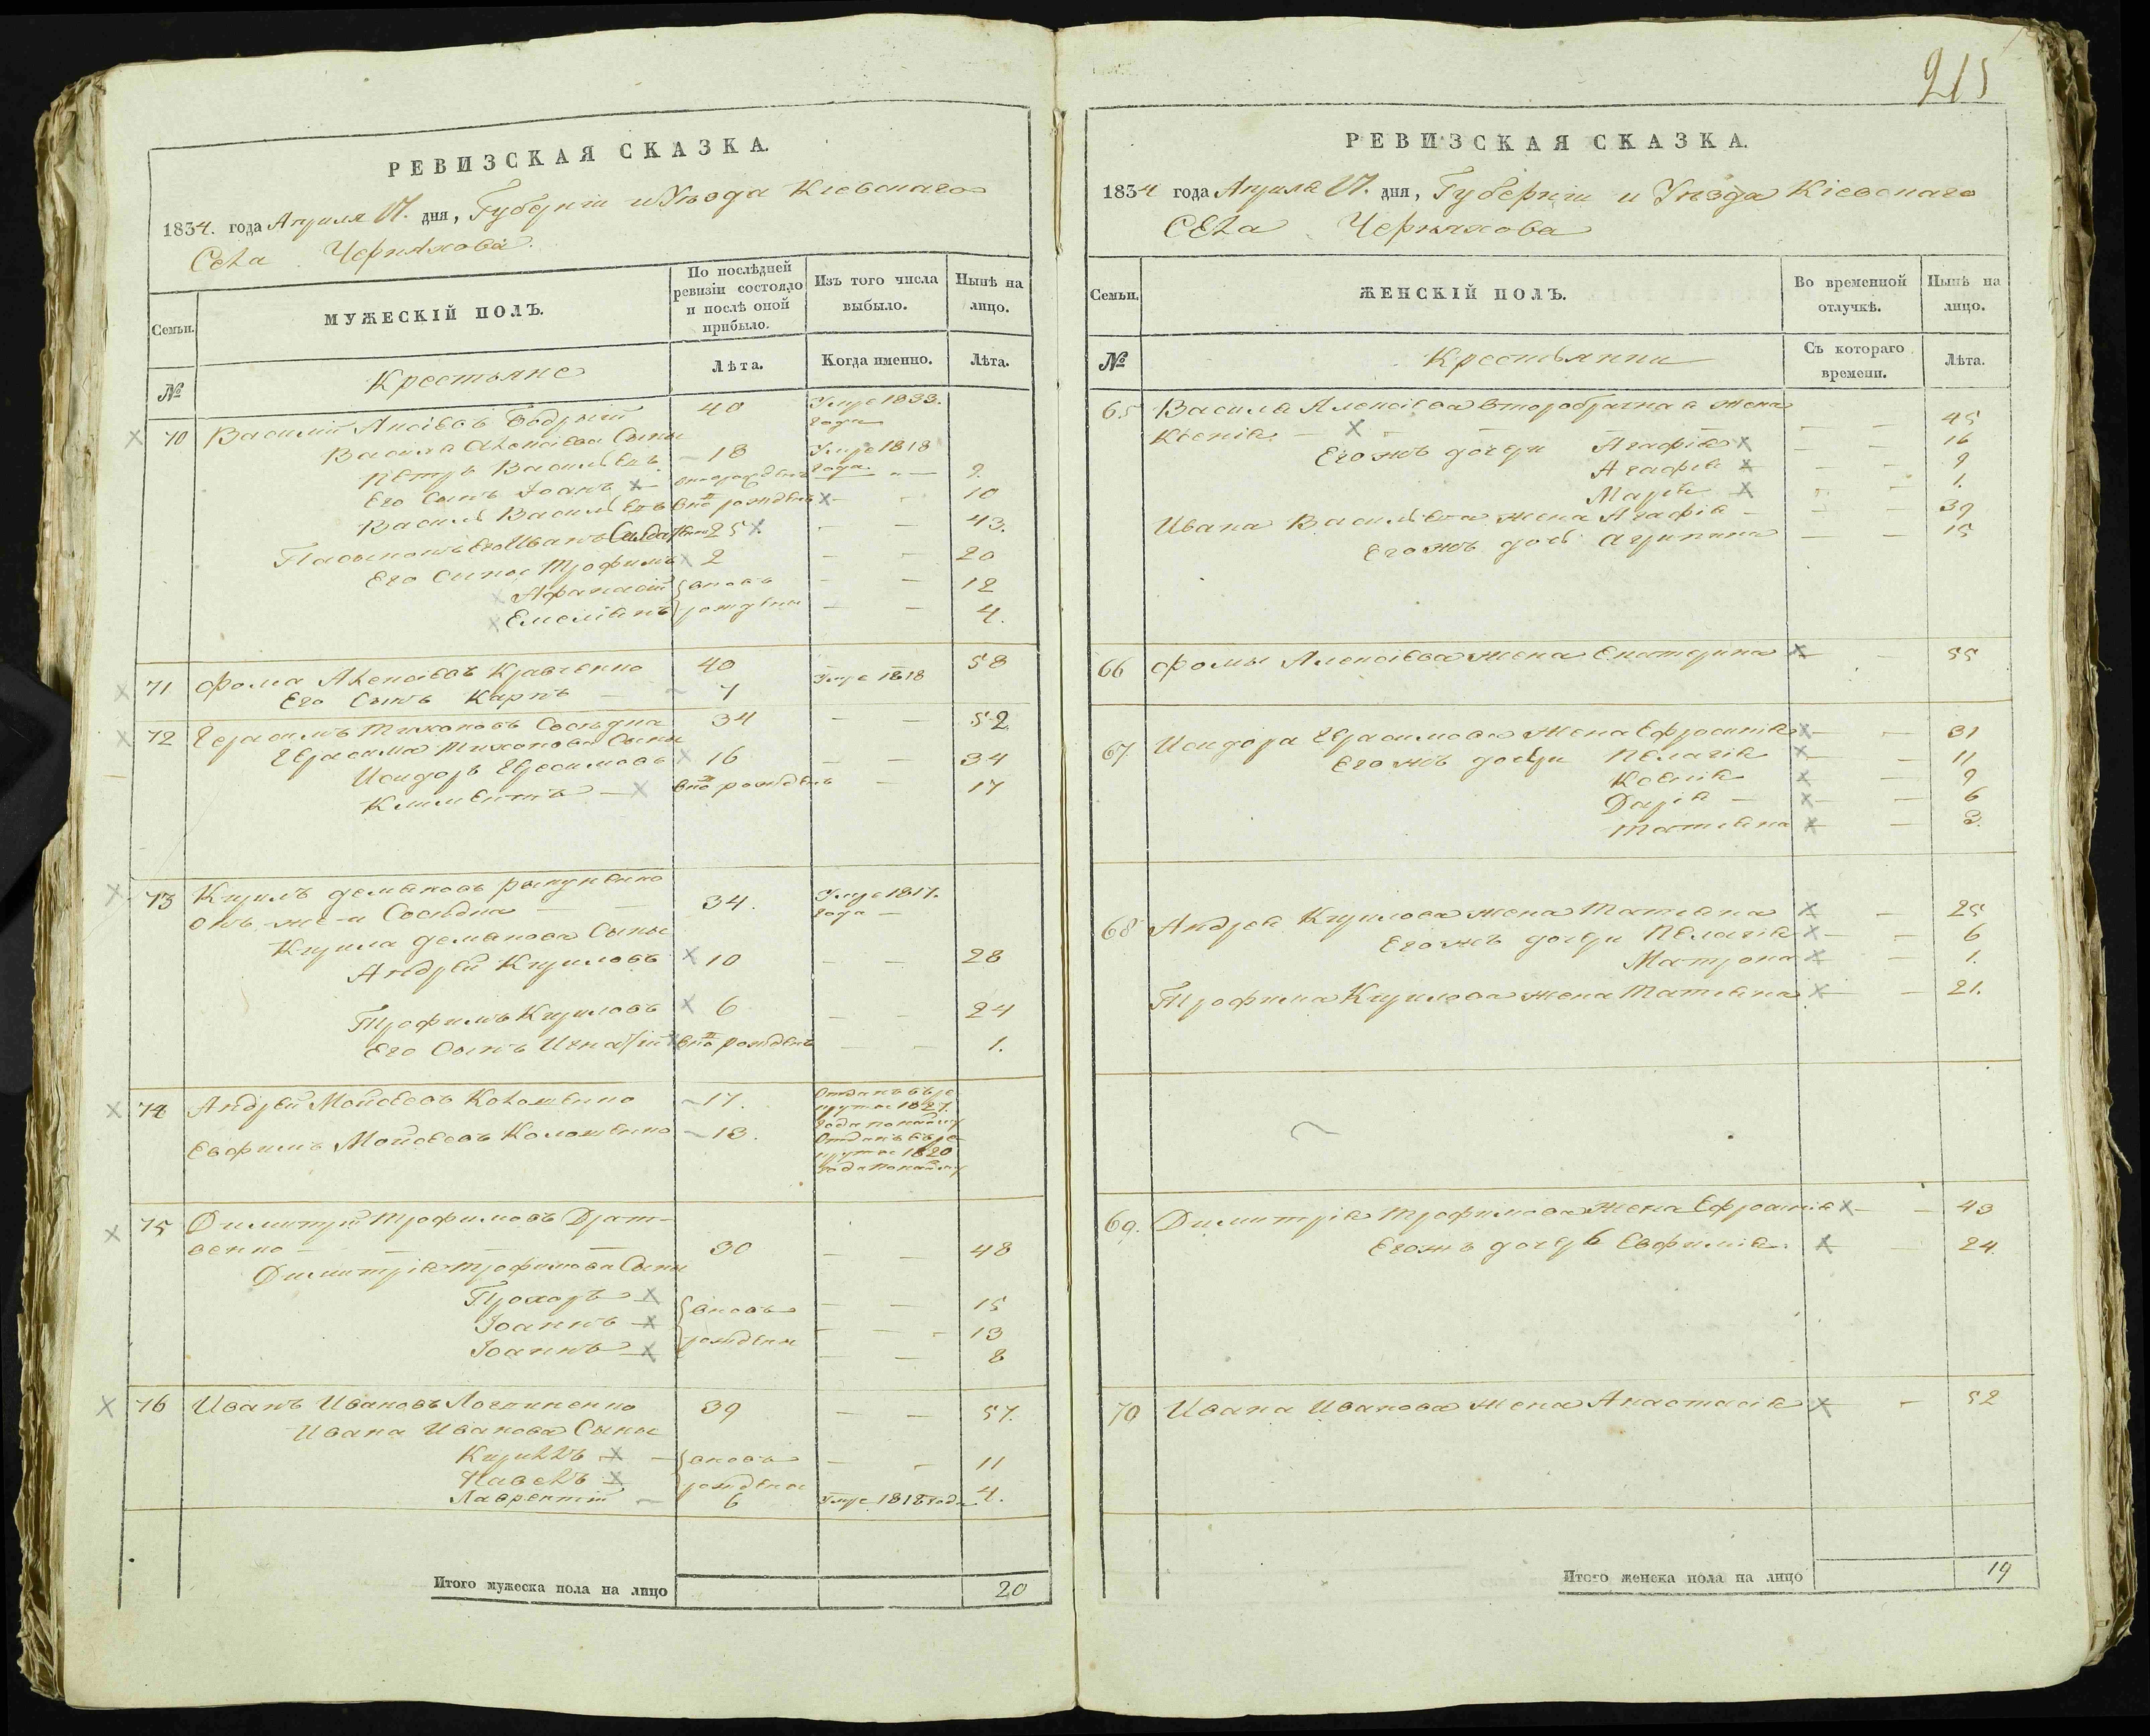 РЕВИЗСКАЯ СКАЗКА.
1834. года Априля 17. дня, Губерніи и Уѣзда Кіевскаго
Села Черняхова.
Семьи.
МУЖЕСКІЙ ПОЛЪ.
По послѣдней ревизіи состояло и послѣ оной прибыло.
Изъ того числа выбыло.
Нынѣ на лицо.
№
Крестьяне
Лѣта.
Когда именно.
Лѣта.
70 Василій 40 Умре 1833. года
Василія Алексіева Сыны
Петръ Васильевъ 18 Умре 1818 года
Его Сынъ Іоанъ 9.
Василь Васильевъ вно рожденъ 10
Пасынокъ Его Иванъ 25 43.
Его Сыны Трофимъ 2 20
Афанасій вновь 12
Емеліанъ рождены 4.
71 Фома Алексіевъ Кравченко 40 58
Его Сынъ Карпъ 7 Умре 1818
72 Герасимъ Тихоновъ Сосѣдка 34 52
Герасима Тихонова Сыны
Исидоръ Герасимовъ 16 34
Климентъ вно рожденъ 17
73 Кирилъ Деміановъ
онъ-же-и Сосѣдка 34. Умре 1817. года
Кирила Деміанова Сыны
Андрей Кириловъ 10 28
Трофимъ Кириловъ 6 24
Его Сынъ Игнатій вно рожденъ 1.
74 Андрей Мойсеевъ Коломіенко 17. Отданъ въ рекруты 1827. года по найму
Евфимъ Мойсеевъ Коломіенко 13. Отданъ въ рекруты 1820 года по найму
75 Димитрій Трофимовъ
венко 30 48
Димитрія Трофимова Сыны
Прохоръ вновь 15
Іоаннъ рождены 13
Іоаннъ 8
76 Иванъ Ивановъ Логвиненко 39 57.
Ивана Иванова Сыны
Кирилъ вновь 11
Павелъ рождены 4.
Лаврентій 6 Умре 1818 года
Итого мужеска пола на лицо 20
215
РЕВИЗСКАЯ СКАЗКА.
1834 года Априля 17. дня, Губерніи и Уѣзда Кіевскаго
Села Черняхова
Семьи.
ЖЕНСКІЙ ПОЛЪ.
Во временной отлучкѣ.
Нынѣ на лицо.
№
Крестьянки
Съ котораго времени.
Лѣта.
65 Василія Алексіева второбрачная жена
Ксенія 45
Его жъ дочери Агафія 16
Агафія 9
Марія 1.
Ивана Васильева жена Агафія 39
Его жъ дочь Агрипина 15
66 Фомы Алексіева жена Екатерина 55
67 Исидора Герасимова жена Ефросинія 31
Его жъ дочери Пелагія 11
Ксенія 9
Дарія 6
Татіана 3.
68 Андрея Кирилова жена Татіана 25
Его жъ дочери Пелагія 6
Матрона 1.
Трофима Кирилова жена Татіана 21.
69. Димитрія Трофимова жена Ефросинія 43
Его жъ дочерь Евфимія 24.
70 Ивана Иванова жена Анастасія 52
Итого женска пола на лицо 19